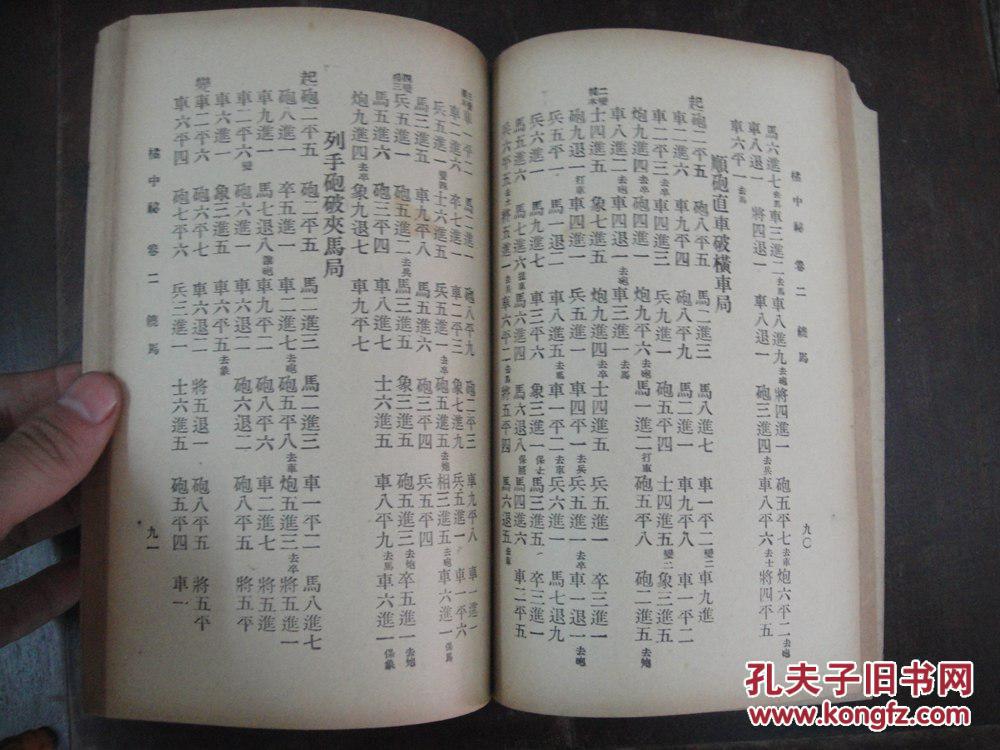 橘中秘 卷二 饒馬 九〇
馬六進七去馬 車三進二去馬 車八進九去砲 將四進一 砲五平七去車 炮六平二去砲
車八退一 將四退一 車八退一 砲三進四去兵 車八平六去士 將四平五
車六平一去馬
順砲直車破橫車局
起砲二平五 砲八平五 馬二進三 馬八進七 車一平二變二 車九進一
車二進六 車九平四 砲八平九 馬二進一 車九平八 車一平二
車二平三去卒 車四進三 兵九進一 砲五平四 士四進五變二 象三進五
炮九進四去卒 車四進一 炮九平六去砲 馬一進二打車 砲五平八 砲二進五去炮
車八進二去砲 車四退一 車三進一去馬
士四進五 象七進五 炮九進四去卒 士四進五 兵五進一 卒三進一
砲九退一打車 車四退一 兵五進一 車四平一去兵 兵五進一去卒 車一退一去砲
兵五平一 馬一退二 車八進五 車一平二去車 兵六進一 馬七退九
兵六進一 馬九進七 象三進一保士 馬三進五 卒三進一
馬五進六 馬七進六 馬六進四 馬六退八 馬四進六 車二平五
兵六平五去士 將五進一去兵 車六平二去馬 將五平四 馬六退五去車
車一平二 馬二進一 砲八平九 砲二平三 車九平八 車一進一
車二進六 卒七進一 車二平三 象七進九 兵五進一 車一平六
兵五進一 士六進五 兵五進一去卒 砲五進五去炮 相三進五去砲 車六進一保馬
馬三進五 車九平八 馬五進六 砲三平四 兵五平四
兵五進一 砲五進二去兵 馬三進五 象三進五 砲五進三去炮 卒五進一去炮
馬五進六 砲三平四 車八進七 士六進五 車八平九去馬 車六進一保象
炮九進四去卒 象九退七 車九平七
列手砲破夾馬局
起砲二平五 砲二平五 馬二進三 馬二進三 車一平二 馬八進七
砲八進一 卒五進一 車二進七去砲 砲五平八去車 炮五進三去卒 將五進一
車九進一 馬七退八讓砲 車九平二 砲八平六 車二進七 將五進一
車二平六變 砲六進一 車六退二 砲六退二 砲八平五 將五平
車六進一 象三進五 車六平五去象
變車二平六 砲六平七 車六退二 將五退一 砲八平五 將五平
車六平四 砲七平六 兵三進一 士六進五 砲五平四 車一
橘中秘 卷二 饒馬 九一
孔夫子旧书网
www.kongfz.com